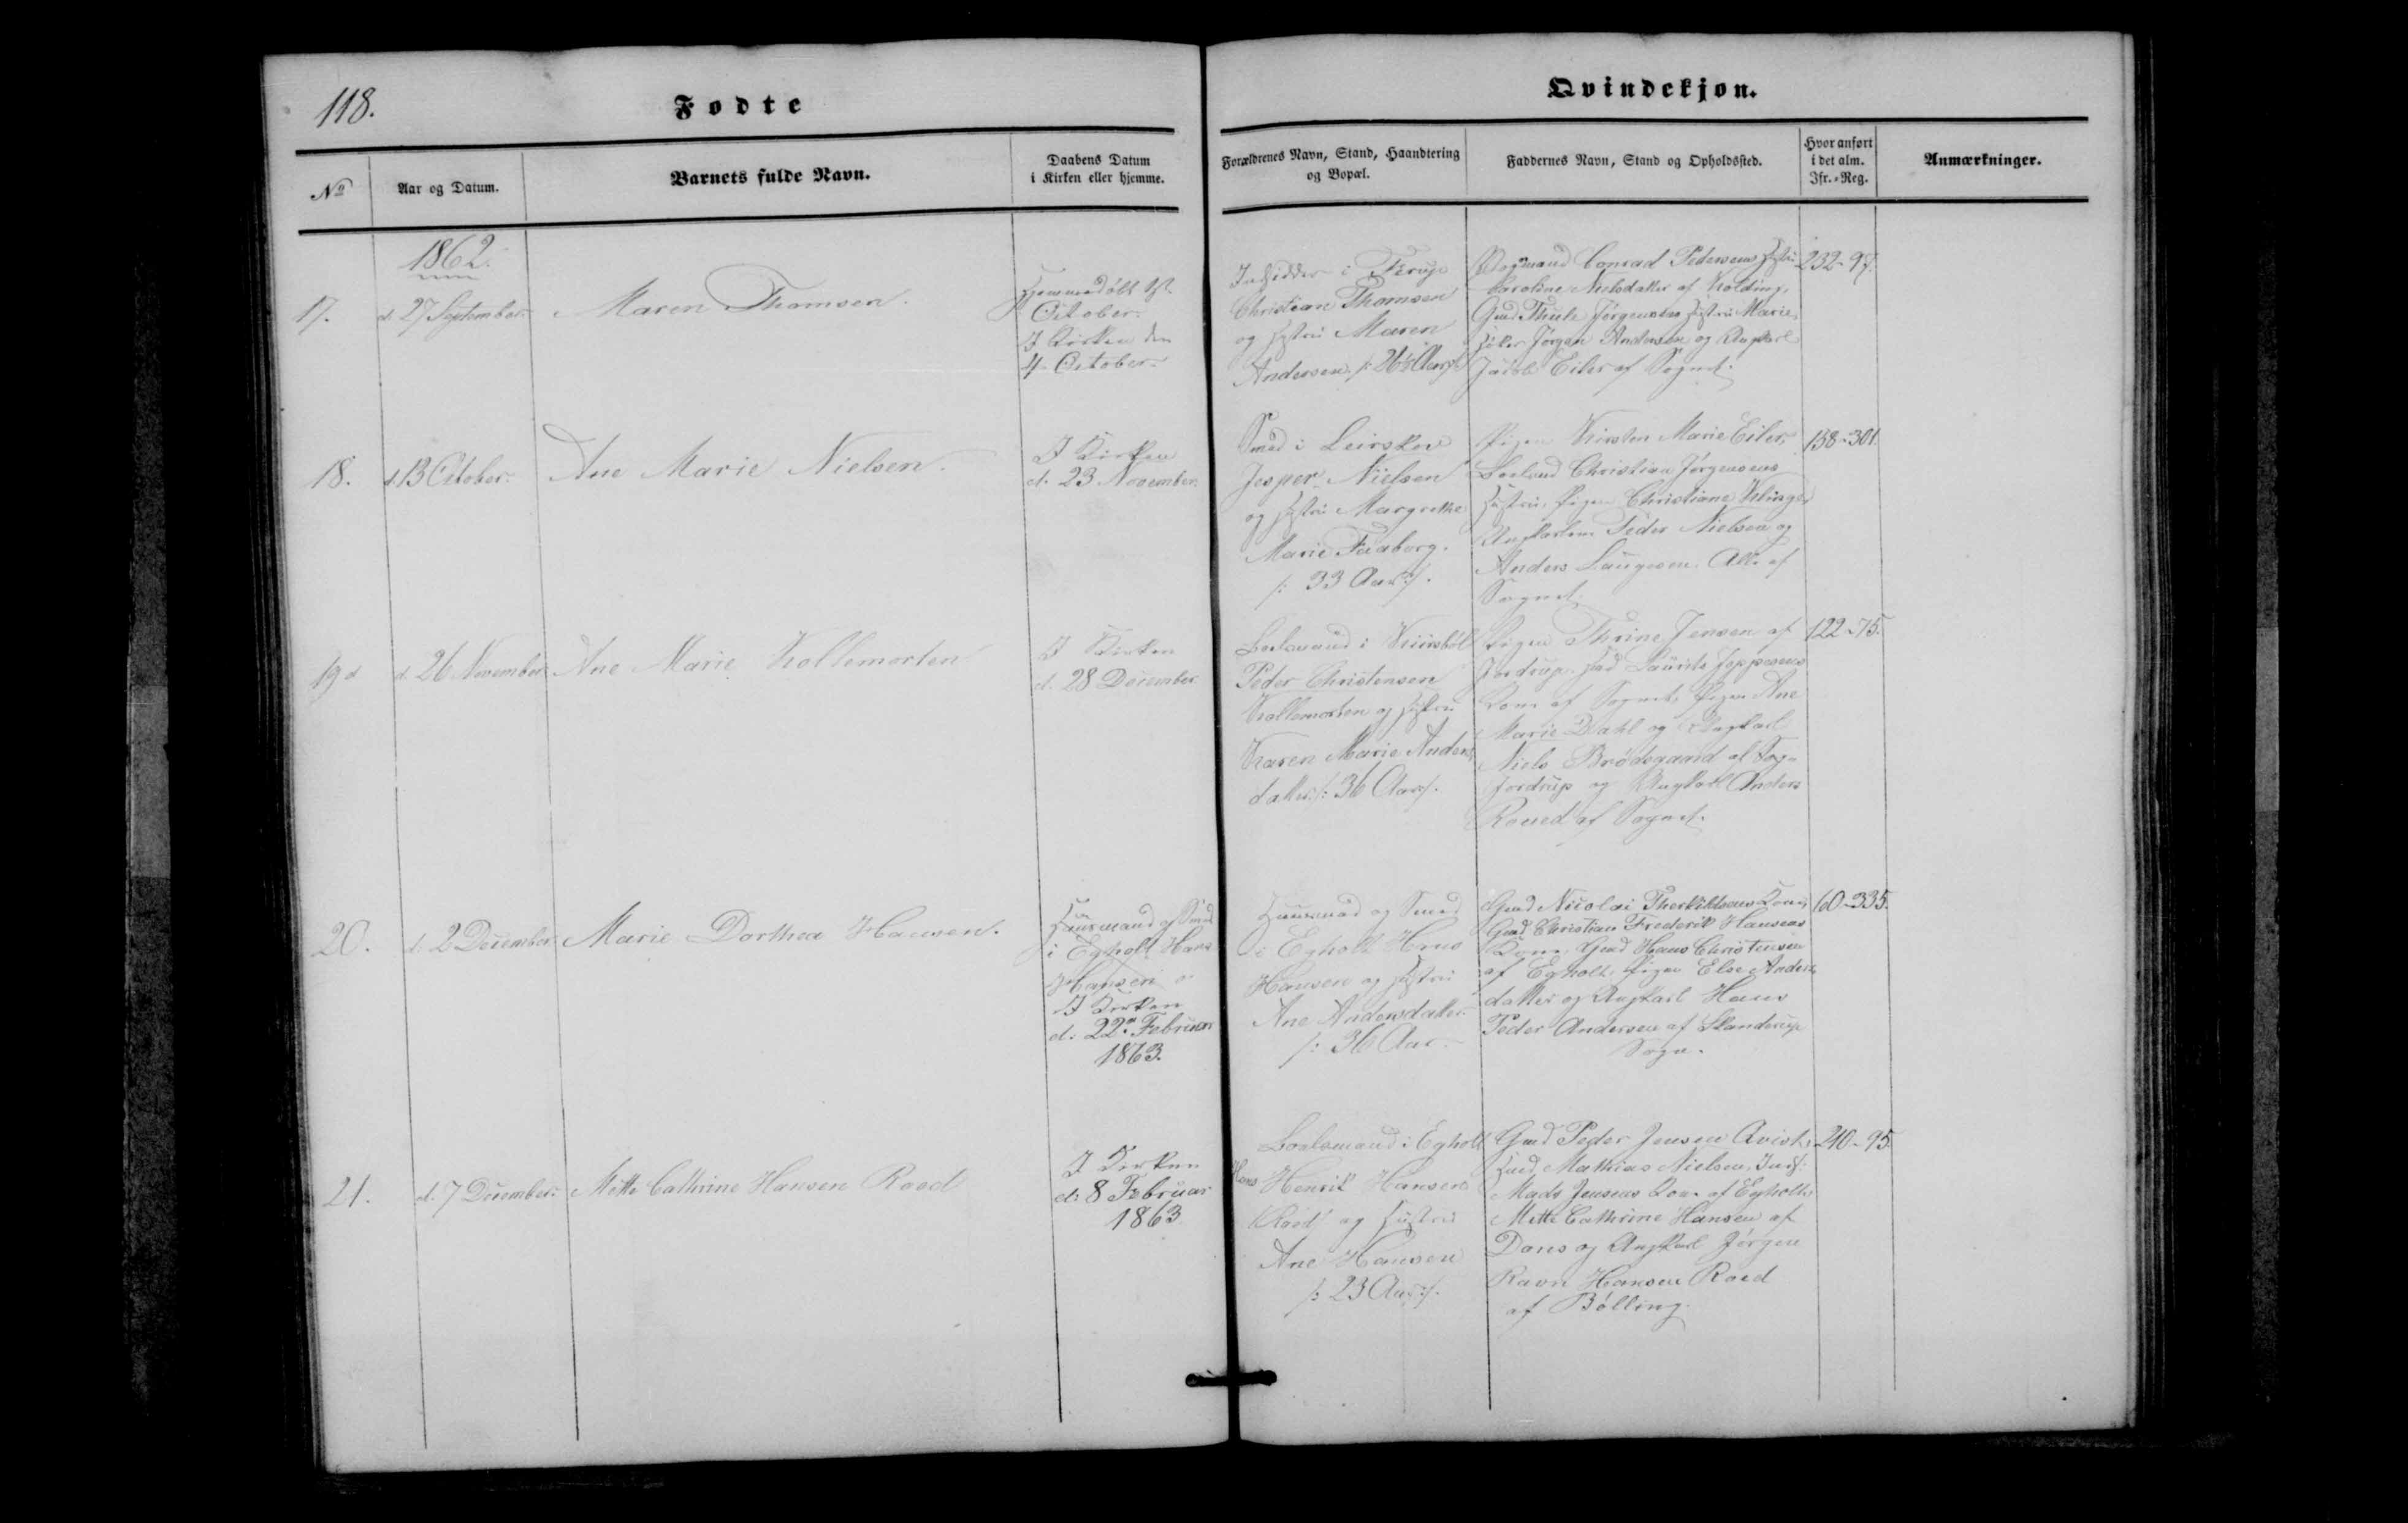 118.
Fødte
Qvindekjøn.
No
Aar og Datum.
Barnets fulde Navn.
Daabens Datum
i Kirken eller hjemme.
Forældrenes Navn, Stand, Haandtering
og Bopæl.
Faddernes Navn, Stand og Opholdssted.
Hvor anført
i det alm.
Jfr.-Reg.
Anmærkninger.
1862.
17.
d. 27 September.
Maren Thomsen.
Hjemmedøbt
October.
I Kirken den
4 October.
Indsidder i Ferup
Christian Thomsen
og Hustru Maren
Andersen
Conrad Pedersens Hustru
Caroline Nielsdatter af Kolding,
Gmd Thule Jørgensens Hustru Marie,
Jørgen Andersen og Ungkarl
Jacob Eiler af Sognet.
232-97.
18.
d. 13 October.
Ane Marie Nielsen.
I Kirken
d. 23 November.
Smed i Leirskov
Jesper Nielsen
og Hustru Margrethe
Marie Faaborg.
/: 33 Aar :/.
Pigen Kirsten Marie Eiler,
Christian Jørgensens
Hustru, Pigen Christiane Klinge,
Ungkarlene Peder Nielsen og
Anders Laugesen. Alle af
Sognet.
158-301.
19
d. 26 November.
Ane Marie Kollemorten
I Kirken
d. 28 December.
Boelsmand i
Peder Christensen
Kollemorten og Hustru
Karen Marie Anders-
datter /: 36 Aar :/.
Pigen Thrine Jensen af
Jordrup, Laurits Jeppesens
Kone af Sognet, Pigen Ane
Marie Dahl og Ungkarl
Niels Brødsgaard af
Jordrup og Ungkarl Anders
af Sognet.
122-75.
20.
d. 2 December.
Marie Dorthea Hansen.
Huusmand og Smed
i Egholt Hans
Hansen
I Kirken
d: 22n Februar
1863.
Huusmad og Smed
i Egholt Hans
Hansen og Hustru
Ane Andersdatter.
/: 36 Aar.
Gmd Nicolai Therkildsens Kone,
Gmd Christian Frederik Hansens
Kone, Gmd Hans Christensen
af Egholt, Pigen Else Anders-
datter og Ungkarl Hans
Peder Andersen af Skanderup
Sogn.
60-335.
21.
d. 7 December.
Mette Cathrine Hansen Raed
I Kirken
d: 8 Februar
1863
Boelsmand i Egholt
Hans Henrik Hansen
Raed og Hustru
Ane Hansen
/: 23 Aar :/.
Gmd Peder Jensen Qvist,
Mathias Nielsen, Inds:
Mads Jensens Kone af Egholt,
Mette Cathrine Hansen af
Dons og Ungkarl Jørgen
Ravn Hansen Raed
af Bølling.
240-95.